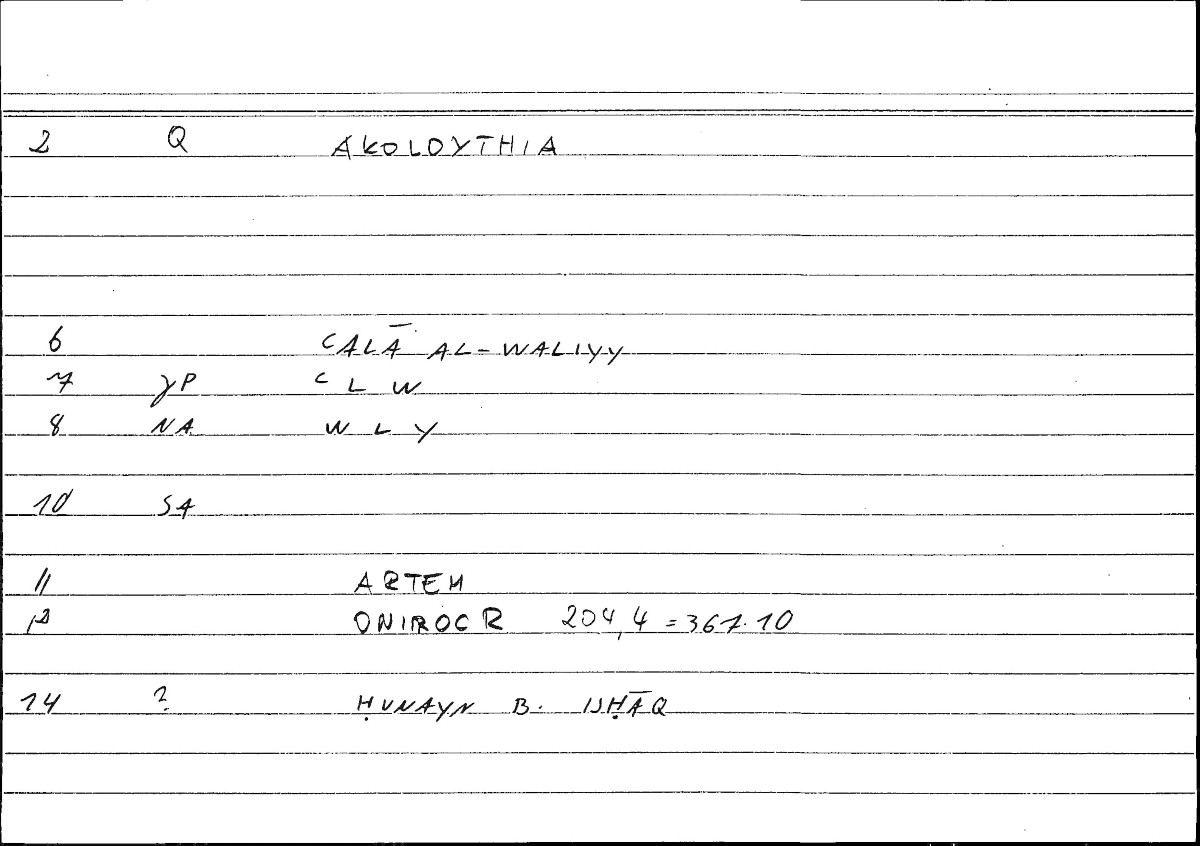 2 Q AKOLOYTHIA
6 ᶜALĀ AL-WALIYY
7 γP ᶜ L W
8 NA W L Y
10 SA
11 ARTEM
12 ONIROCR 204,4 = 367.10
14 ? ḤUNAYN B. ISḤĀQ